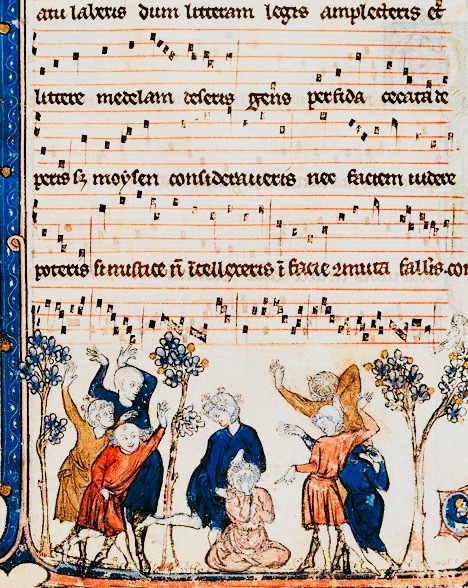 atu laberis dum litteram legis amplecteris et
littere medelam deseris gens perfida cecata de
peris sꝫ moysen consideraueris nec faciem uidere
poteris si mistice n̄ ītellexeris ī facie ꝯmuta fallis.cor